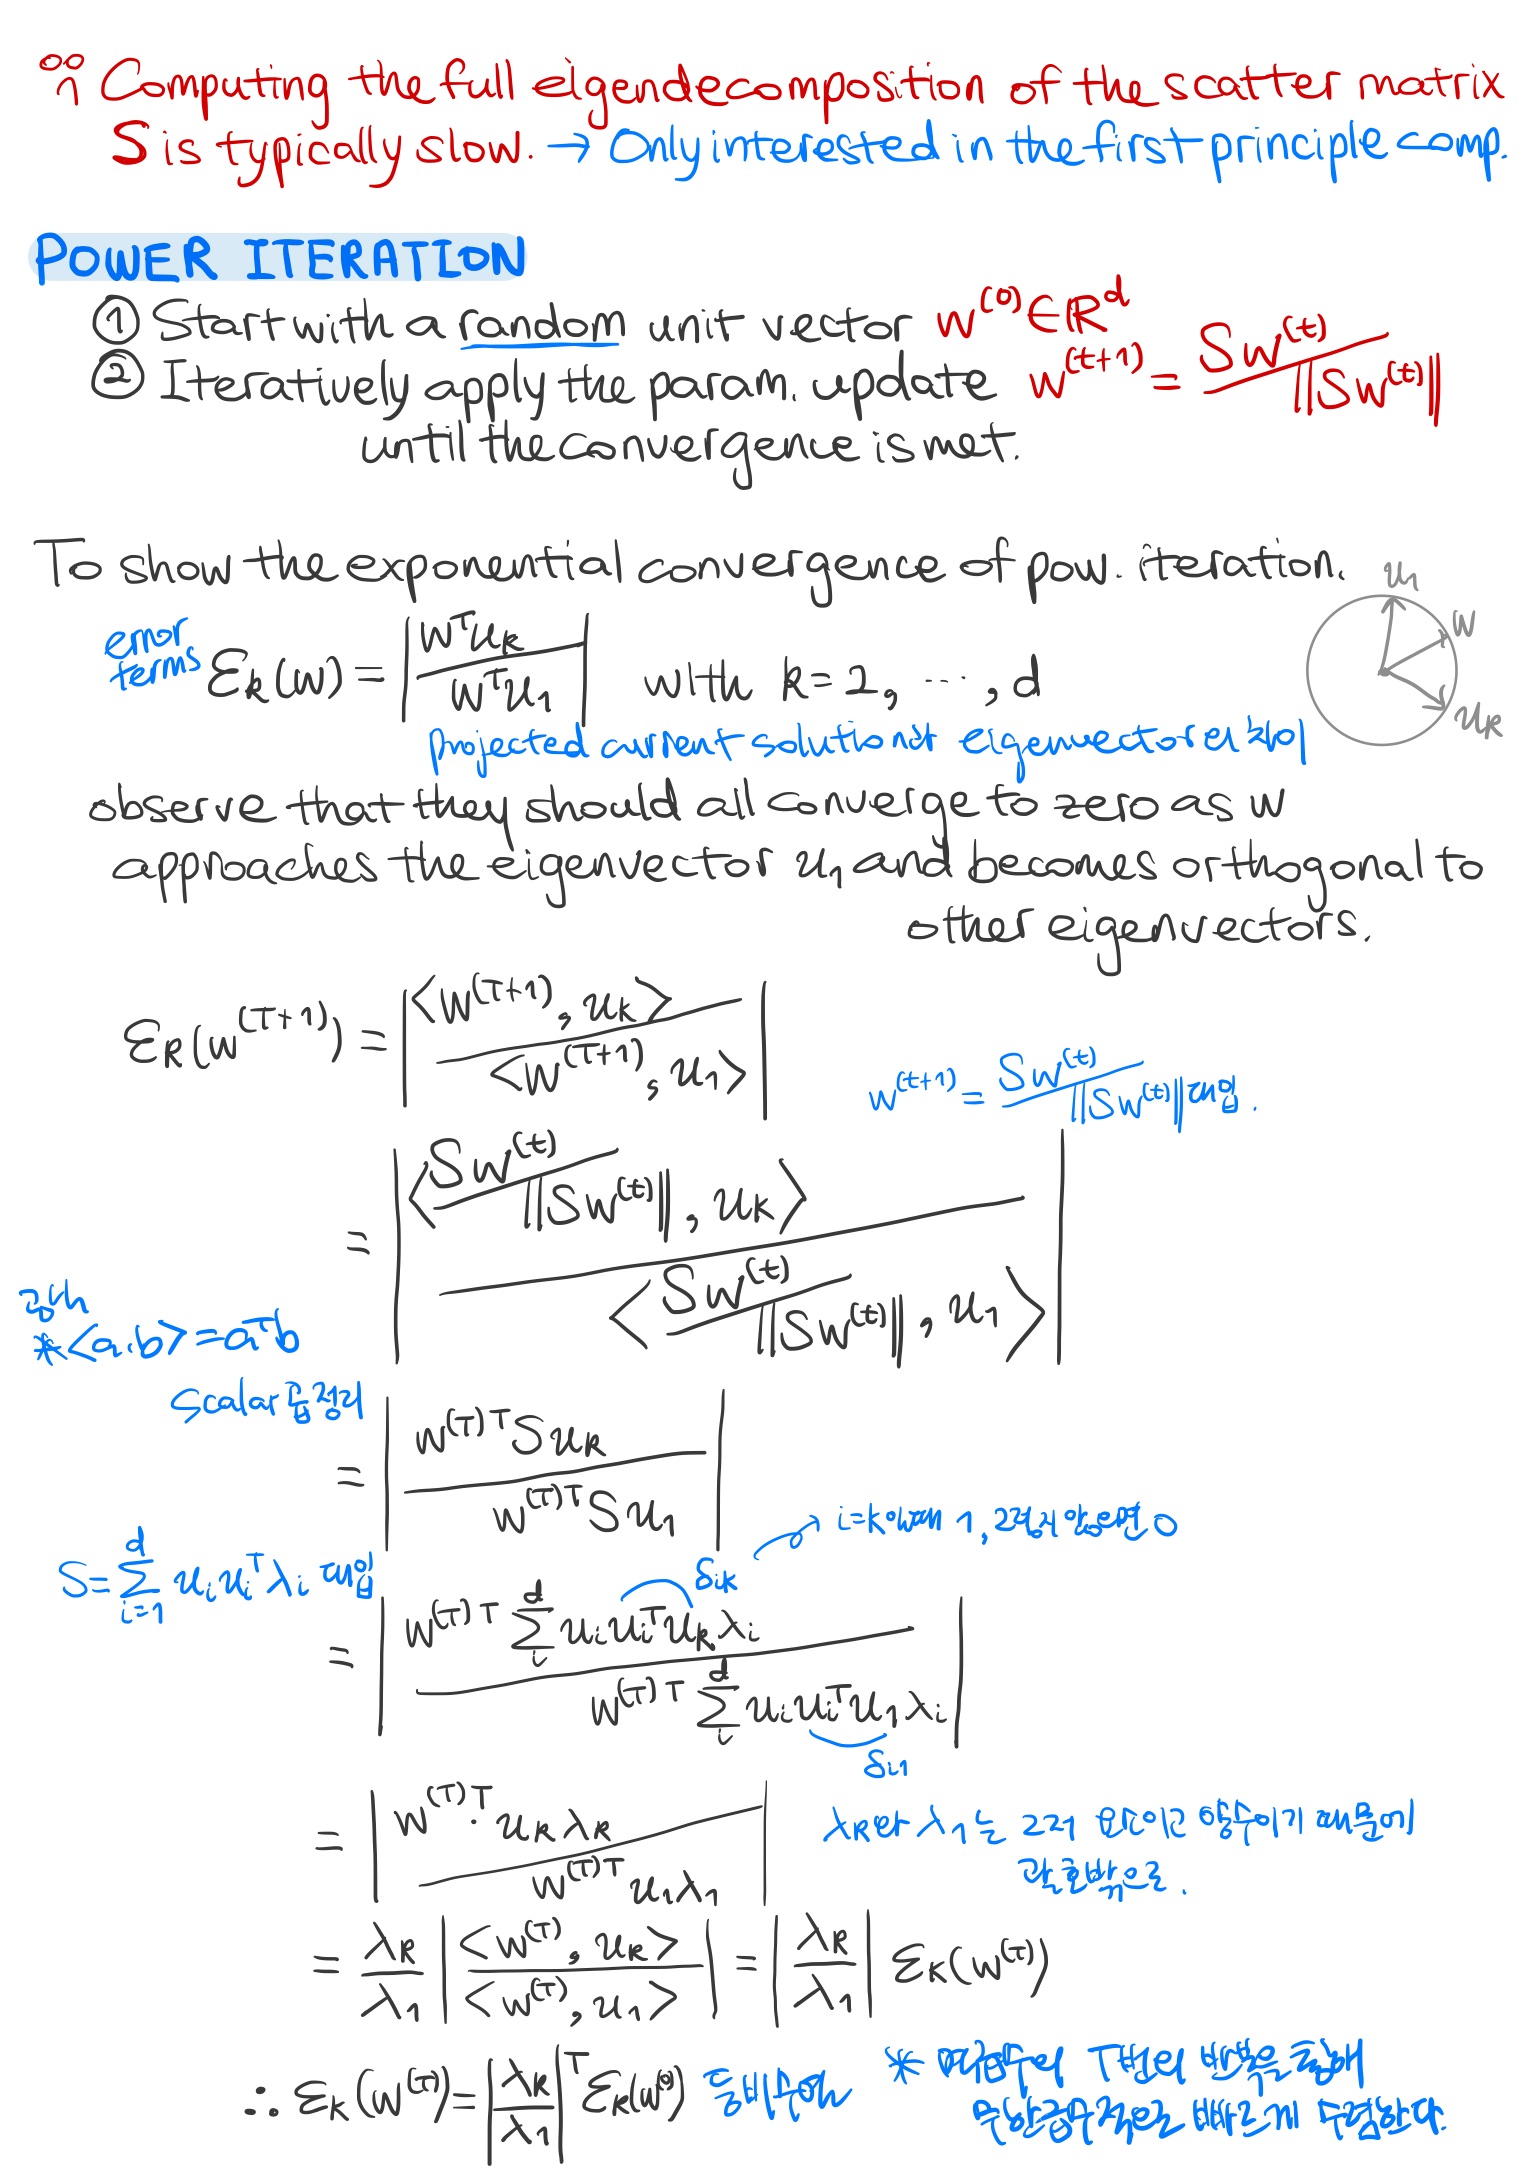 Computing the full eigendecomposition of the scatter matrix
S is typically slow. → Only interested in the first principle comp.
POWER ITERATION
① Start with a random unit vector w^(0) ∈ R^d
② Iteratively apply the param. update w^(t+1) = Sw^(t) / ||Sw^(t)||
until the convergence is met.
To show the exponential convergence of pow. iteration.
error terms ε_k(w) = | w^T u_k / w^T u_1 | with k = 2, ..., d
u_1
w
u_k
projected current solution과 eigenvector의 차이
observe that they should all converge to zero as w
approaches the eigenvector u_1 and becomes orthogonal to
other eigenvectors.
ε_k(w^(T+1)) = | <w^(T+1), u_k> / <w^(T+1), u_1> |
w^(t+1) = Sw^(t) / ||Sw^(t)|| 대입.
= | <Sw^(t) / ||Sw^(t)||, u_k> / <Sw^(t) / ||Sw^(t)||, u_1> |
* <a,b> = a^T b
scalar 곱 정리
= | w^(T)T S u_k / w^(T)T S u_1 |
i=k일때 1, 그렇지 않으면 0
S = Σ_{i=1}^d u_i u_i^T λ_i 대입
δ_ik
= | w^(T)T Σ_i^d u_i u_i^T u_k λ_i / w^(T)T Σ_i^d u_i u_i^T u_1 λ_i |
δ_i1
= | w^(T)·T u_k λ_k / w^(T)T u_1 λ_1 |
λ_k와 λ_1는 그저 요소이고 양수이기 때문에
괄호밖으로.
= λ_k / λ_1 | <w^(T), u_k> / <w^(T), u_1> | = | λ_k / λ_1 | ε_k(w^(T))
∴ ε_k(w^(T)) = | λ_k / λ_1 |^T ε_k(w^(0)) 등비수열
* T번의 반복을 통해
빠르게 수렴한다.